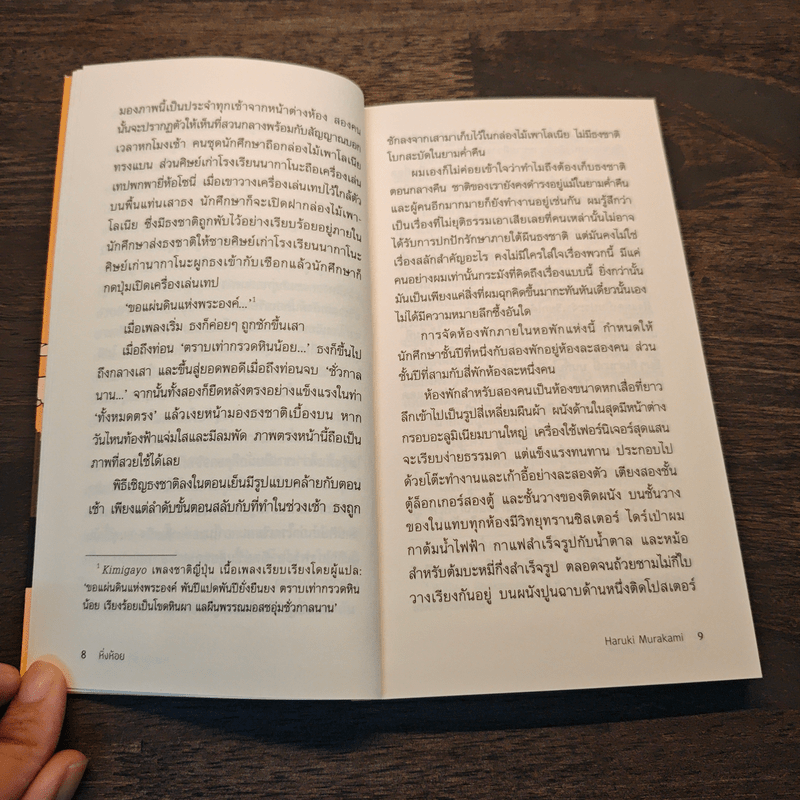 มองภาพนี้เป็นประจำทุกเช้าจากหน้าต่างห้อง สองคน
นั้นจะปรากฏตัวให้เห็นที่สวนกลางพร้อมกับสัญญาณบอก
เวลาหกโมงเช้า คนชุดนักศึกษาถือกล่องไม้เพาโลเนีย
ทรงแบน ส่วนศิษย์เก่าโรงเรียนนากาโนะถือเครื่องเล่น
เทปพกพายี่ห้อโซนี่ เมื่อเขาวางเครื่องเล่นเทปไว้ใกล้ตัว
บนพื้นแท่นเสาธง นักศึกษาก็จะเปิดฝากล่องไม้เพา-
โลเนีย ซึ่งมีธงชาติถูกพับไว้อย่างเรียบร้อยอยู่ภายใน
นักศึกษาส่งธงชาติให้ชายศิษย์เก่าโรงเรียนนากาโนะ
ศิษย์เก่านากาโนะผูกธงเข้ากับเชือกแล้วนักศึกษาก็
กดปุ่มเปิดเครื่องเล่นเทป
‘ขอแผ่นดินแห่งพระองค์...’¹
เมื่อเพลงเริ่ม ธงก็ค่อยๆ ถูกชักขึ้นเสา
เมื่อถึงท่อน ‘ตราบเท่ากรวดหินน้อย...’ ธงก็ขึ้นไป
ถึงกลางเสา และขึ้นสู่ยอดพอดีเมื่อถึงท่อนจบ ‘ชั่วกาล
นาน...’ จากนั้นทั้งสองก็ยืดหลังตรงอย่างแข็งแรงในท่า
‘ทั้งหมดตรง’ แล้วเงยหน้ามองธงชาติเบื้องบน หาก
วันไหนท้องฟ้าแจ่มใสและมีลมพัด ภาพตรงหน้านี้ถือเป็น
ภาพที่สวยใช้ได้เลย
พิธีเชิญธงชาติลงในตอนเย็นมีรูปแบบคล้ายกับตอน
เช้า เพียงแต่ลำดับขั้นตอนสลับกับที่ทำในช่วงเช้า ธงถูก
¹ Kimigayo เพลงชาติญี่ปุ่น เนื้อเพลงเรียบเรียงโดยผู้แปล:
‘ขอแผ่นดินแห่งพระองค์ พันปีแปดพันปียั่งยืนยง ตราบเท่ากรวดหิน
น้อย เรียงร้อยเป็นโขดหินผา แลผืนพรรณมอสชอุ่มชั่วกาลนาน’
8 หิ่งห้อย
ชักลงจากเสามาเก็บไว้ในกล่องไม้เพาโลเนีย ไม่มีธงชาติ
โบกสะบัดในยามค่ำคืน
ผมเองก็ไม่ค่อยเข้าใจว่าทำไมถึงต้องเก็บธงชาติ
ตอนกลางคืน ชาติของเรายังคงดำรงอยู่แม้ในยามค่ำคืน
และผู้คนอีกมากมายก็ยังทำงานอยู่เช่นกัน ผมรู้สึกว่า
เป็นเรื่องที่ไม่ยุติธรรมเอาเสียเลยที่คนเหล่านั้นไม่อาจ
ได้รับการปกปักรักษาภายใต้ผืนธงชาติ แต่มันคงไม่ใช่
เรื่องสลักสำคัญอะไร คงไม่มีใครใส่ใจเรื่องพวกนี้ มีแค่
คนอย่างผมเท่านั้นกระมังที่คิดถึงเรื่องแบบนี้ ยิ่งกว่านั้น
มันเป็นเพียงแค่สิ่งที่ผมฉุกคิดขึ้นมากะทันหันเดี๋ยวนั้นเอง
ไม่ได้มีความหมายลึกซึ้งอันใด
การจัดห้องพักภายในหอพักแห่งนี้ กำหนดให้
นักศึกษาชั้นปีที่หนึ่งกับสองพักอยู่ห้องละสองคน ส่วน
ชั้นปีที่สามกับสี่พักห้องละหนึ่งคน
ห้องพักสำหรับสองคนเป็นห้องขนาดหกเสื่อที่ยาว
ลึกเข้าไปเป็นรูปสี่เหลี่ยมผืนผ้า ผนังด้านในสุดมีหน้าต่าง
กรอบอะลูมิเนียมบานใหญ่ เครื่องใช้เฟอร์นิเจอร์สุดแสน
จะเรียบง่ายธรรมดา แต่แข็งแรงทนทาน ประกอบไป
ด้วยโต๊ะทำงานและเก้าอี้อย่างละสองตัว เตียงสองชั้น
ตู้ล็อกเกอร์สองตู้ และชั้นวางของติดผนัง บนชั้นวาง
ของในแทบทุกห้องมีวิทยุทรานซิสเตอร์ ไดร์เป่าผม
กาต้มน้ำไฟฟ้า กาแฟสำเร็จรูปกับน้ำตาล และหม้อ
สำหรับต้มบะหมี่กึ่งสำเร็จรูป ตลอดจนถ้วยชามไม่กี่ใบ
วางเรียงกันอยู่ บนผนังปูนฉาบด้านหนึ่งติดโปสเตอร์
Haruki Murakami 9